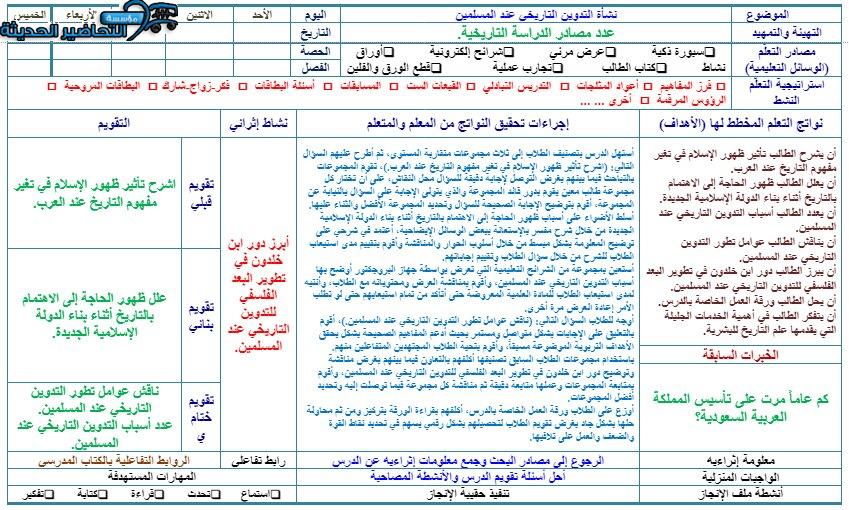 الموضوع
نشأة التدوين التاريخي عند المسلمين
اليوم
الأحد
الاثنين
الأربعاء
الخميس
مؤسسة
التحاضير الحديثة
التهيئة والتمهيد
عدد مصادر الدراسة التاريخية.
التاريخ
مصادر التعلم
سبورة ذكية
عرض مرئي
شرائح إلكترونية
أوراق
الحصة
(الوسائل التعليمية)
نشاط
كتاب الطالب
تجارب عملية
قطع الورق والفلين
الفصل
استراتيجية التعلم
النشط
فرز المفاهيم
أعواد المثلجات
التدريس التبادلي
القبعات الست
المسابقات
أسئلة البطاقات
فكر-زواج-شارك
البطاقات المروحية
الرؤوس المرقمة
أخرى ... ...
نواتج التعلم المخطط لها (الأهداف)
إجراءات تحقيق النواتج من المعلم والمتعلم
نشاط إثرائي
التقويم
أن يشرح الطالب تأثير ظهور الإسلام في تغير
مفهوم التاريخ عند العرب.
أن يعلل الطالب ظهور الحاجة إلى الاهتمام
بالتاريخ أثناء بناء الدولة الإسلامية الجديدة.
أن يعدد الطالب أسباب التدوين التاريخي عند
المسلمين.
أن يناقش الطالب عوامل تطور التدوين
التاريخي عند المسلمين.
أن يبرز الطالب دور ابن خلدون في تطوير البعد
الفلسفي للتدوين التاريخي عند المسلمين.
أن يحل الطالب ورقة العمل الخاصة بالدرس.
أن يتفكر الطالب في أهمية الخدمات الجليلة
التي يقدمها علم التاريخ للبشرية.
الخبرات السابقة
كم عاماً مرت على تأسيس المملكة
العربية السعودية؟
أستهل الدرس بتصنيف الطلاب إلى ثلاث مجموعات متقاربة المستوى، ثم أطرح عليهم السؤال
التالي: (اشرح تأثير ظهور الإسلام في تغير مفهوم التاريخ عند العرب.)، تقوم المجموعات
بالتباحث فيما بينهم بغرض التوصل لإجابة دقيقة للسؤال محل النقاش، على أن تختار كل
مجموعة طالب معين يقوم بدور قائد المجموعة والذي يتولى الإجابة على السؤال بالنيابة عن
المجموعة، أقوم بتوضيح الإجابة الصحيحة للسؤال وتحديد المجموعة الأفضل والثناء عليها.
أسلط الأضواء على أسباب ظهور الحاجة إلى الاهتمام بالتاريخ أثناء بناء الدولة الإسلامية
الجديدة من خلال شرح مفسر بالإستعانة ببعض الوسائل الإيضاحية، أعتمد في شرحي على
توضيح المعلومة بشكل مبسط من خلال أسلوب الحوار والمناقشة وأقوم بتقييم مدى استيعاب
الطلاب للشرح من خلال سؤال الطلاب وتقييم إجاباتهم.
أستعين بمجموعة من الشرائح التعليمية التي تعرض بواسطة جهاز البروجكتور أوضح بها
أسباب التدوين التاريخي عند المسلمين، وأقوم بمناقشة العرض ومحتوياته مع الطلاب، وأنتبه
لمدى استيعاب الطلاب للمادة العلمية المعروضة حتى أتأكد من تمام استيعابهم حتى لو تطلب
الأمر إعادة العرض مرة أخرى.
أوجه للطلاب السؤال التالي: (ناقش عوامل تطور التدوين التاريخي عند المسلمين.)، أقوم
بالتعليق على الإجابات بشكل متواصل ومستمر بحيث أدعم المفاهيم الصحيحة بشكل يحقق
الأهداف التربوية الموضوعة مسبقاً، وأقوم بتحية الطلاب المجتهدين المتفاعلين منهم.
باستخدام مجموعات الطلاب السابق تصنيفها أكلفهم بالتعاون فيما بينهم بغرض مناقشة
وتوضيح دور ابن خلدون في تطوير البعد الفلسفي للتدوين التاريخي عند المسلمين، وأقوم
بمتابعة المجموعات وعملها متابعة دقيقة ثم مناقشة كل مجموعة فيما توصلت إليه وتحديد
أفضل المجموعات.
أوزع على الطلاب ورقة العمل الخاصة بالدرس، أكلفهم بقراءة الورقة بتركيز ومن ثم محاولة
حلها بشكل جاد بغرض تقويم الطلاب لتحصيلهم بشكل رقمي يسهم في تحديد نقاط القوة
والضعف والعمل على تلافيها.
أبرز دور ابن
خلدون في
تطوير البعد
الفلسفي
للتدوين
التاريخي عند
المسلمين.
تقويم
قبلي
اشرح تأثير ظهور الإسلام في تغير
مفهوم التاريخ عند العرب.
تقويم
بنائي
علل ظهور الحاجة إلى الاهتمام
بالتاريخ أثناء بناء الدولة
الإسلامية الجديدة.
تقويم
ختام
ي
ناقش عوامل تطور التدوين
التاريخي عند المسلمين.
عدد أسباب التدوين التاريخي عند
المسلمين.
معلومة إثراءيه
الرجوع إلى مصادر البحث وجمع معلومات إثراءيه عن الدرس
رابط تفاعلي
الروابط التفاعلية بالكتاب المدرسي
الواجبات المنزلية
أحل أسئلة تقويم الدرس والأنشطة المصاحبة
المهارات المستهدفة
أنشطة ملف الإنجاز
تنفيذ حقيبة الإنجاز
استماع
تحدث
قراءة
كتابة
تفكير